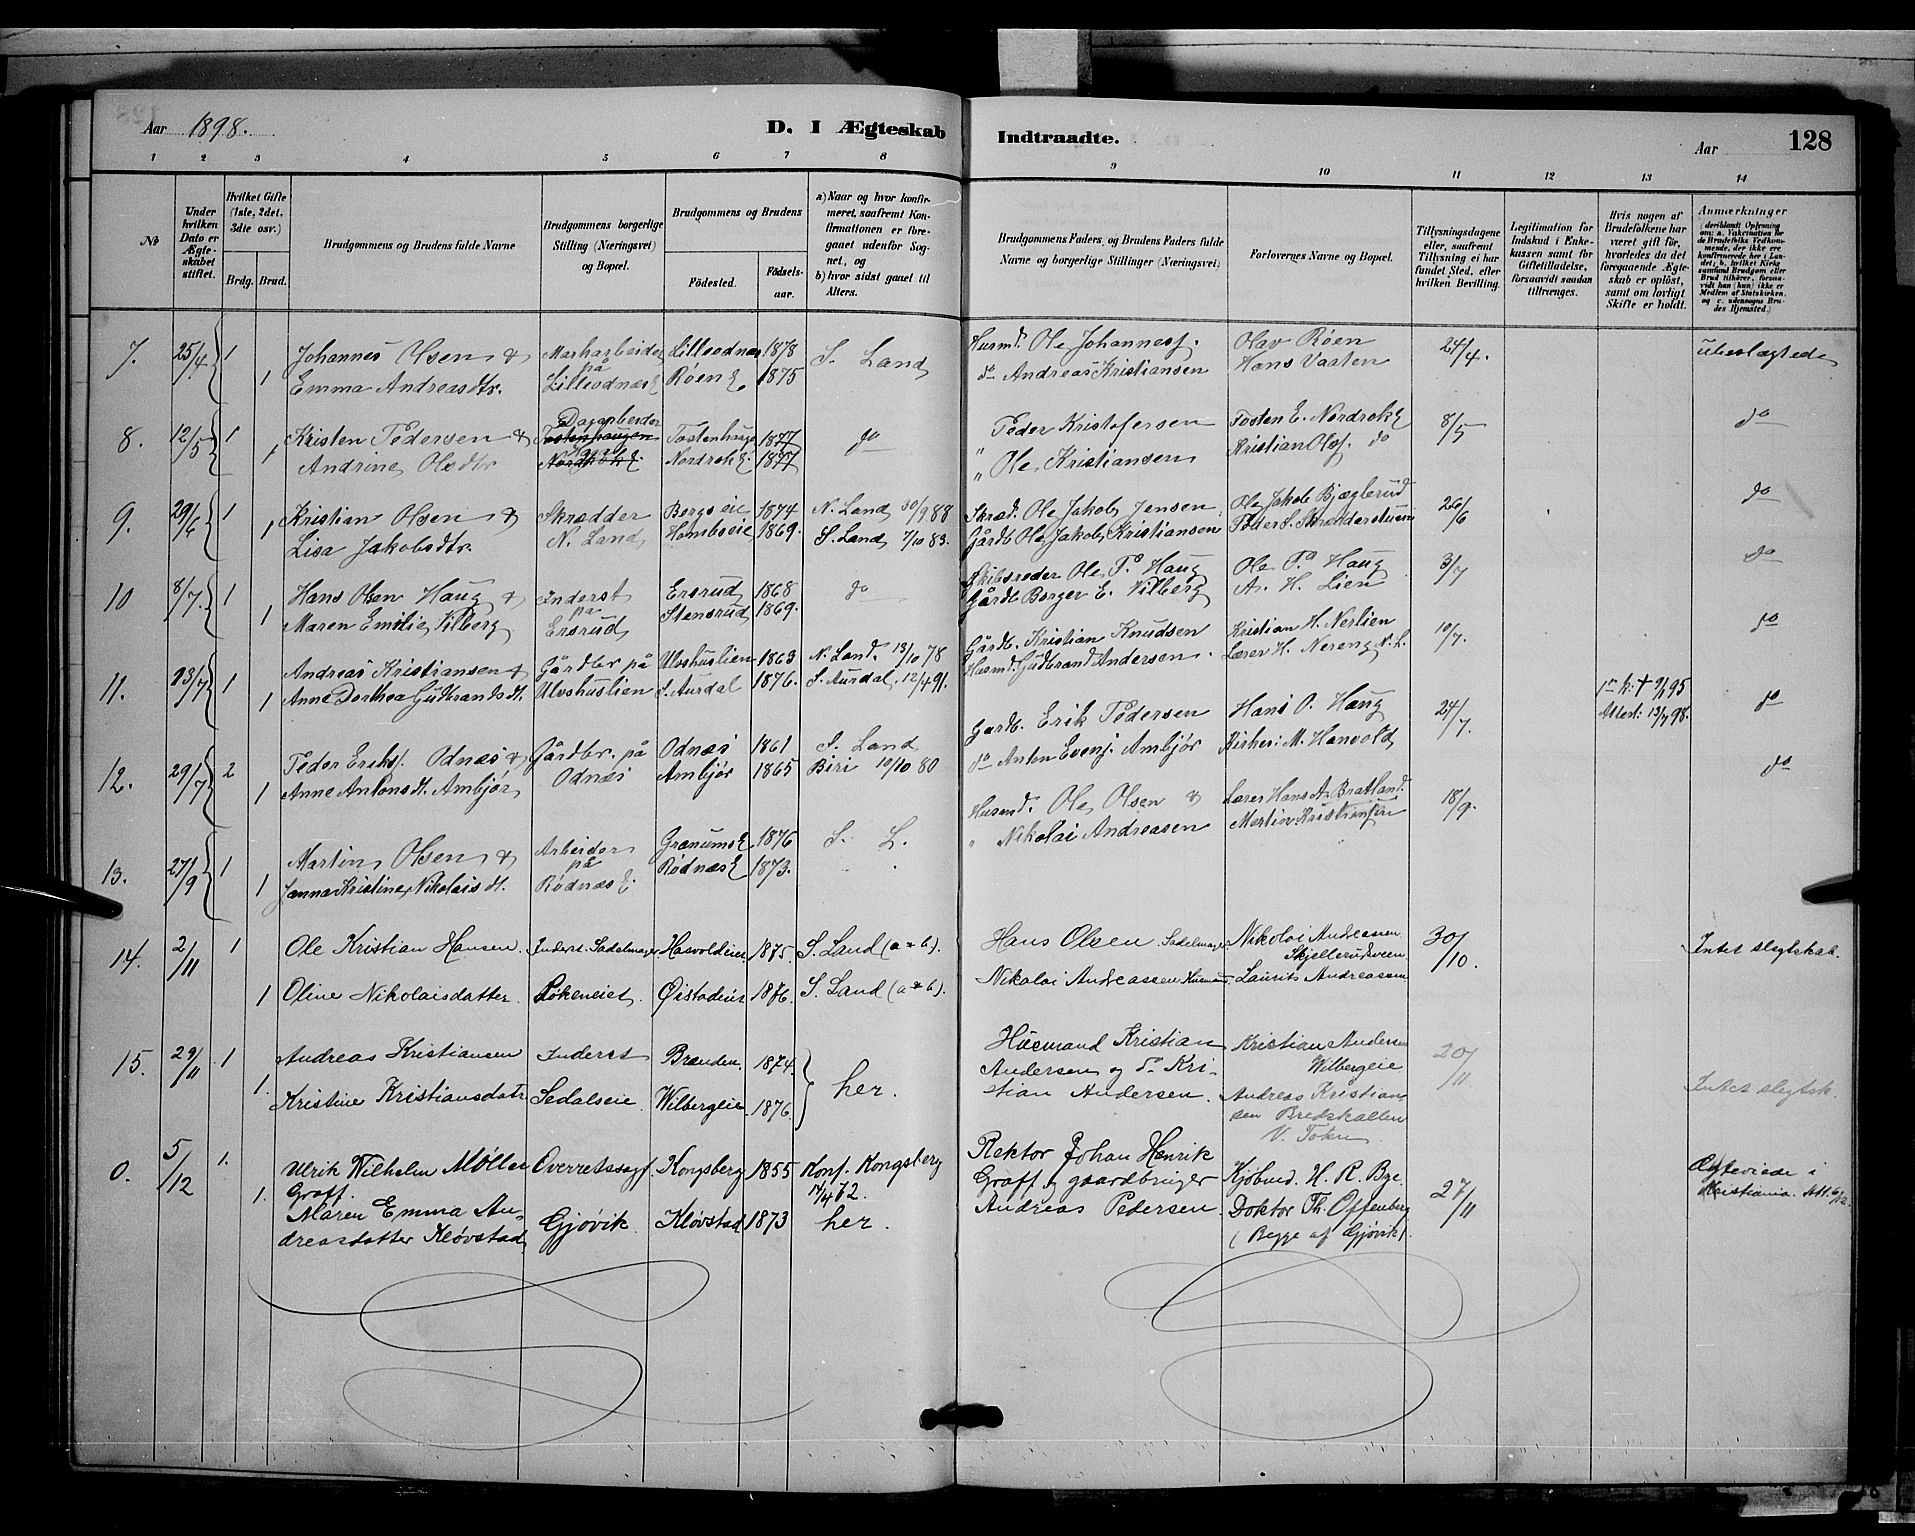 Aar 1898. D. I Ægteskab Indtraadte. Aar 128
1 2 3 4 5 6 7 8 9 10 11 12 13 14
No
Under hvilken Dato er Ægteskabet stiftet.
Hvilket Gifte (1ste, 2det, 3die osv.)
Brdg. Brud.
Brudgommens og Brudens fulde Navne
Brudgommens borgerlige Stilling (Næringsvei) og Bopæl.
Brudgommens og Brudens
Fødested. Fødselsaar.
a) Naar og hvor konfirmeret, saafremt Konfirmationen er foregaaet udenfor Sognet, og
b) hvor sidst gaaet til Alters.
Brudgommens Faders, og Brudens Faders fulde Navne og borgerlige Stillinger (Næringsvei)
Forlovernes Navne og Bopæl.
Tillysningsdagene eller, saafremt Tillysning ei har fundet Sted, efter hvilken Bevilling.
Legitimation for Indskud i Enkekassen samt for Giftetilladelse, forsaavidt saadan tiltrænges.
Hvis nogen af Brudefolkene har været gift før, hvorledes da det foregaaende Ægteskab er opløst, samt om lovligt Skifte er holdt.
Anmærkninger
7. 25/4 1 Johannes Olsen & Markarbeider Lilleodnæs 1878 S. Land Husmd. Ole Johannesf. Olav Røen 24/4. ubeslægtede
på
1 Emma Andreasdtr. Lilleodnæs E Røen E 1875 do Andreas Kristiansen Hans Vasten
8. 12/5 1 Kristen Pedersen & Dagarbeider Tostenhauge 1877 do Peder Kristofersen Tosten E. Nordrok E 8/5 do
1 Andrine Olsdtr Nordrok E. 1877 " Ole Kristiansen Kristian Olsf. do
9. 29/6 1 Kristian Olsen & Skrædder Bergseie 1874 N. Land 30/9 88 Skræd. Ole Jakob Jensen Ole Jakob Bjæglerud 26/6 do
1 Lisa Jakobsdtr. N. Land 1869. S. Land 7/10 83. Gårdb. Ole Jakob Kristiansen Peder S. Skrædderstuen
10 8/7. 1 Hans Olsen Haug & Inderst Ersrud 1868 do Skibsreder Ole P. Haug Ole P. Haug 3/7 do
på
1 Maren Emilie Vilberg Ersrud Stensrud 1869. Gårdb. Borger E. Vilberg A. H. Lien
11. 13/7 1 Andreas Kristiansen & Gårdbr på Ulvshuslien 1863 N. Land. 13/10 78 Gårdb. Kristian Knudsen Kristian H. Nerlien 10/7. do
1 Anne Dorthea Gudbrandsdt. Ulvshuslien S. Aurdal 1876. S. Aurdal. 12/4 91. Husmd. Gudbrand Andersen. Lærer H. Nereng N. L.
12. 29/7 2 Peder Eriks. Odnæs & Gårdbr. på Odnæs 1861 S. Land Gardb. Erik Pedersen Hans O. Haug 24/7. Attest: 13/7 98. do
1 Anne Antonsdt. Ambjør Odnæs Ambjør 1865 Biri 10/10 80 do Anton Evenf. Ambjør Kirkes: M. Hanvold
13. 27/9 1 Martin Olsen & Arbeider Granums E 1876 S. L. Husmd. Ole Olsen & Lærer Hans A. Bratland. 18/9. do
på
1 Janna Kristine Nikolaisdt. Rødnæs E. Rødnæs E 1873. " Nikolai Andreasen Martin Kristiansen
14. 2/11 1 Ole Kristian Hansen. Inderst. Sadelmager Hasvoldeie 1875. S. Land (a & b). Hans Olsen Sadelmager Nikolai Andreassen 30/10. Intet slegtskab.
Skjellerudsveen
1 Oline Nikolaisdatter. Løkeneiet. Øistadeie 1876. S. Land (a & b). Nikolai Andreassen Husmand Laurits Andreassen
15. 29/11 1 Andreas Kristiansen Inderst Brænden. 1874. her. Husmand Kristian Kristian Andersen 20/11 Intet slegtsk.
Andersen og do Kri- Wilbergeie
1. Kristine Kristiansdatr. Sedalseie Wilbergeie 1876. stian Andersen. Andreas Kristian-
sen Bredskallen
V. Toten
0. 5/12 1. Ulrik Wilhelm Møller Overretssagf. Kongsberg 1855 Konf. Kongsberg Rektor Johan Henrik Kjøbmd. H. R. Bye. 27/11 Ægteviede i
Graff. 14/4 72. Graff og gaardbruger Kristiania. Att. 6/12.
1. Maren Emma An- Gjøvik. Kløvstad 1873 her. Andreas Pedersen. Doktor Th. Offenberg
dreasdatter Kløvstad (Begge af Gjøvik).